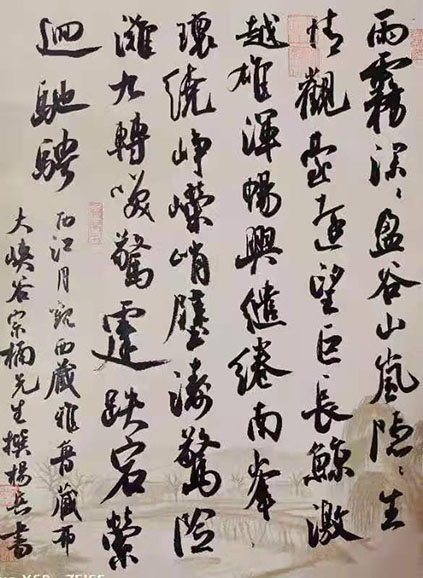 雨霧深〻盈谷山嵐隱〻生
情觀臺遠望巨長鯨激
越雄渾暢興繾綣南峯
環繞崢嶸峭壁濤驚險
灘九轉嘆驚霆跌宕縈
迴馳騁
西江月觀西藏雅魯藏布
大峽谷宗楠先生撰楊書